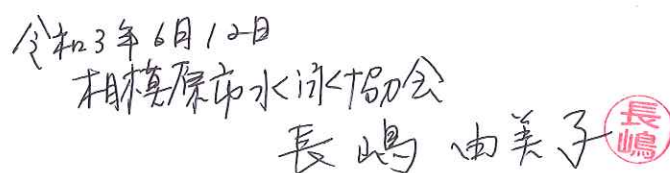 令和3年6月12日
相模原市水泳協会
長嶋 由美子
長嶋